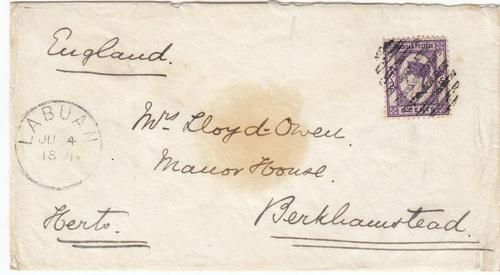 England.
LABUAN
JU 4
1891
Mrs Lloyd-Owen.
Manor House.
Berkhamstead.
Herts.